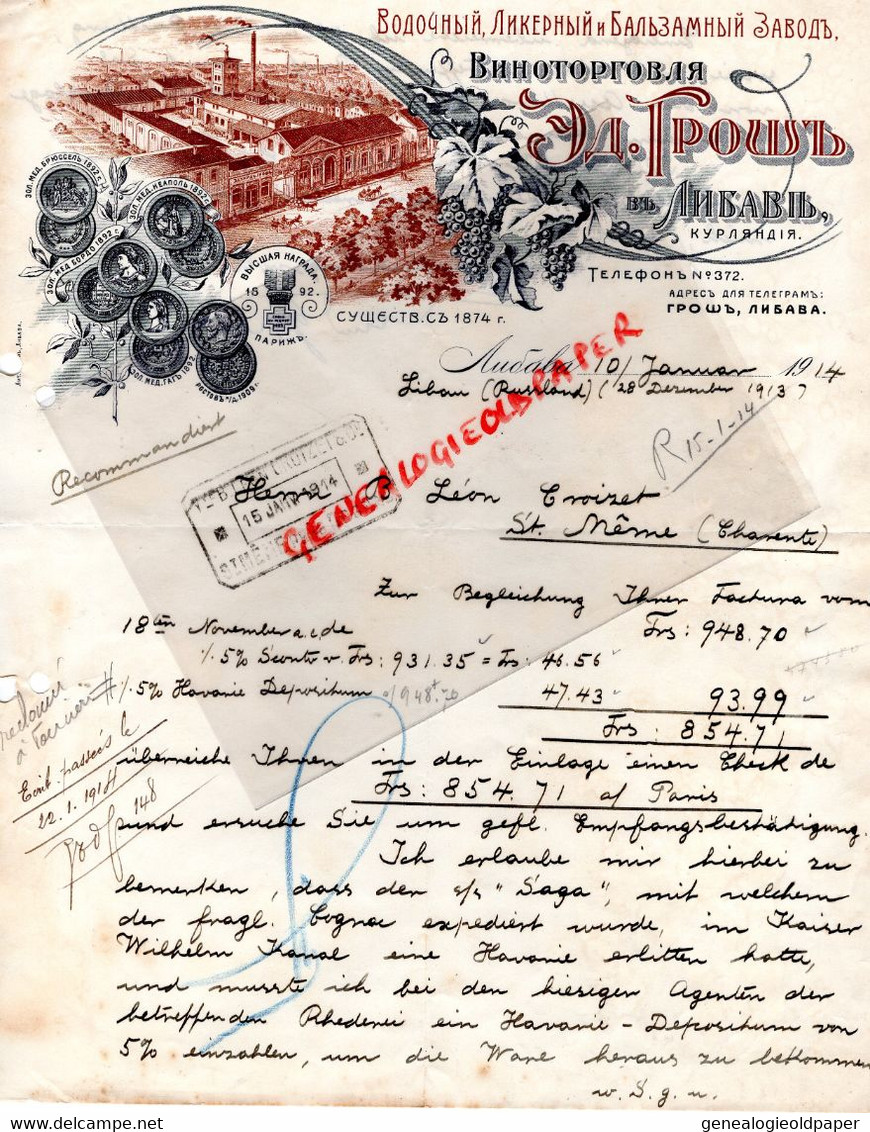 Водочный, Ликерный и Бальзамный Заводъ,
Виноторговля
Эд. Грошъ
въ Либавѣ,
КУРЛЯНДІЯ.
ТЕЛЕФОНЪ № 372.
АДРЕСЪ ДЛЯ ТЕЛЕГРАМЪ:
ГРОШЪ, ЛИБАВА.
ЗОЛ. МЕД. БРЮССЕЛЬ 1892 г.
ЗОЛ. МЕД. НЕАПОЛЬ 1892 г.
ЗОЛ. МЕД. БОРДО 1892 г.
ВЫСШАЯ НАГРАДА.
1892.
ПАРИЖЪ.
ЗОЛ. МЕД. ГАГЪ 1892
РОСТОВЪ н/Д. 1909 г.
СУЩЕСТВ. СЪ 1874 г.
Либава 10/ Januar 1914
Libau (Russland) (28 Dezember 1913)
Recommandiert
R 15-1-14
15 JANV 1914
GENEALOGIEOLDPAPER
Herrn B Léon Croizet
St. Même (Charente)
Zur Begleichung Ihrer Factura vom
18ten November a. c. de Frs: 948.70
% 5% Sconto v. Frs: 931.35 = Frs: 46.56
% 5% Havarie Depositum 948.70 47.43 93.99
Frs: 854.71
réclamé
à Tournier
Ecrit. passées le
22.1.1914
148
überreiche Ihnen in der Einlage einen Check de
Frs: 854.71 a/ Paris
und ersuche Sie um gefl. Empfangsbestätigung.
Ich erlaube mir hierbei zu
bemerken, dass der s/s "Saga", mit welchem
der fragl. Cognac expediert wurde, im Kaiser
Wilhelm Kanal eine Havarie erlitten hatte,
und musste ich bei den hiesigen Agenten der
betreffenden Rhederei ein Havarie-Depositum von
5% einzahlen, um die Ware heraus zu bekommen
w. S. g. u.
genealogieoldpaper